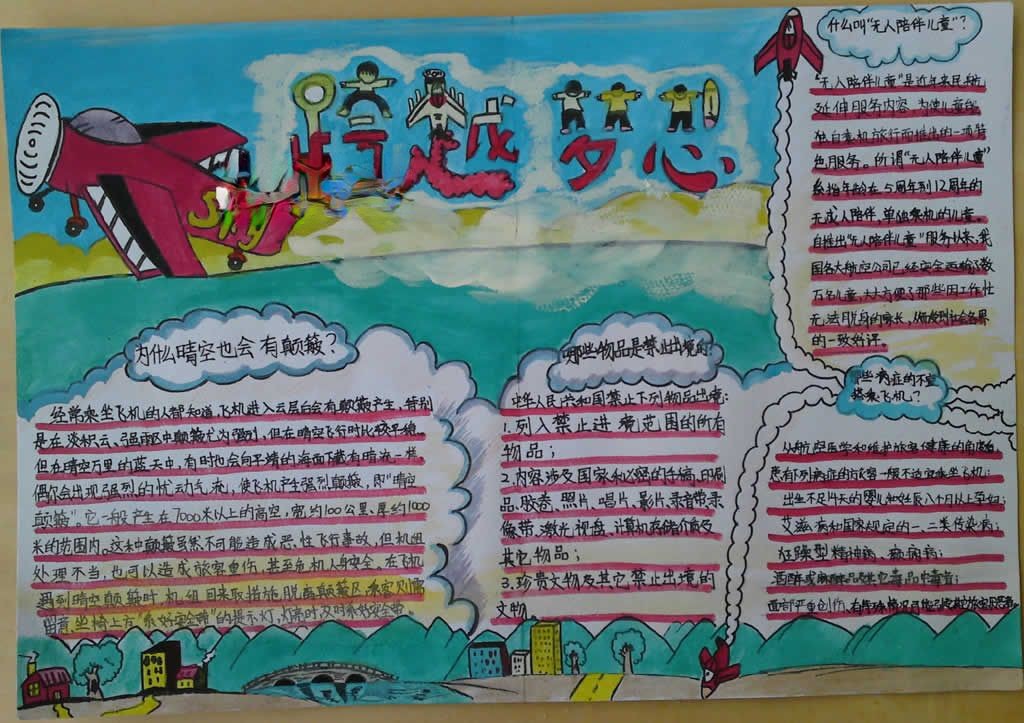 跨越梦想
Sky
什么叫"无人陪伴儿童"?
"无人陪伴儿童"是近年来民航
延伸服务内容,为使儿童能
独自乘机旅行而推出的一项特
色服务。所谓"无人陪伴儿童"
系指年龄在5周年到12周年的
无成人陪伴、单独乘机的儿童。
自推出"无人陪伴儿童"服务以来,我
国各大航空公司已经安全运输了数
万名儿童,大大方便了那些因工作性
无法脱身的家长,
的一致好评。
为什么晴空也会有颠簸?
经常乘坐飞机的人都知道,飞机进入云层后会有颠簸产生,特别
是在淡积云、强雨区中颠簸尤为强烈,但在晴空飞行时比较平稳。
但在晴空万里的蓝天中,有时也会向平靖的海面下藏有暗流一样
偶尔会出现强烈的忧动气流,使飞机产生强烈颠簸,即"晴空
颠簸"。它一般产生在7000米以上的高空,宽约100公里、厚约1000
米的范围内。这种颠簸虽然不可能造成恶性飞行事故,但机组
处理不当,也可以造成旅客重伤,甚至危机人身安全。在飞机
遇到晴空颠簸时,机组回采取措施,脱离颠簸区,乘客则需
留意,坐椅上方"系好安全带"的提示灯,灯亮时及时系好安全带。
哪些物品是禁止出境的?
中华人民共和国禁止下列物品出境:
1.列入禁止进境范围的所有
物品;
2.内容涉及国家和必密的手稿、印刷
品、胶卷、照片、唱片、影片、录音带、录
像带、激光视盘、计算机存储介质及
其它物品;
3.珍贵文物及其它禁止出境的
文物
些病症的不宜
搭乘飞机?
从航空医学和维护旅客健康的角度看
患有下列病症的旅客一般不适宜乘坐飞机:
出生不足14天的婴儿和妊辰八个月以上孕妇;
艾滋病和国家规定的一、二类传染病;
狂躁型精神病、癫痫病;
面部严重创伤,